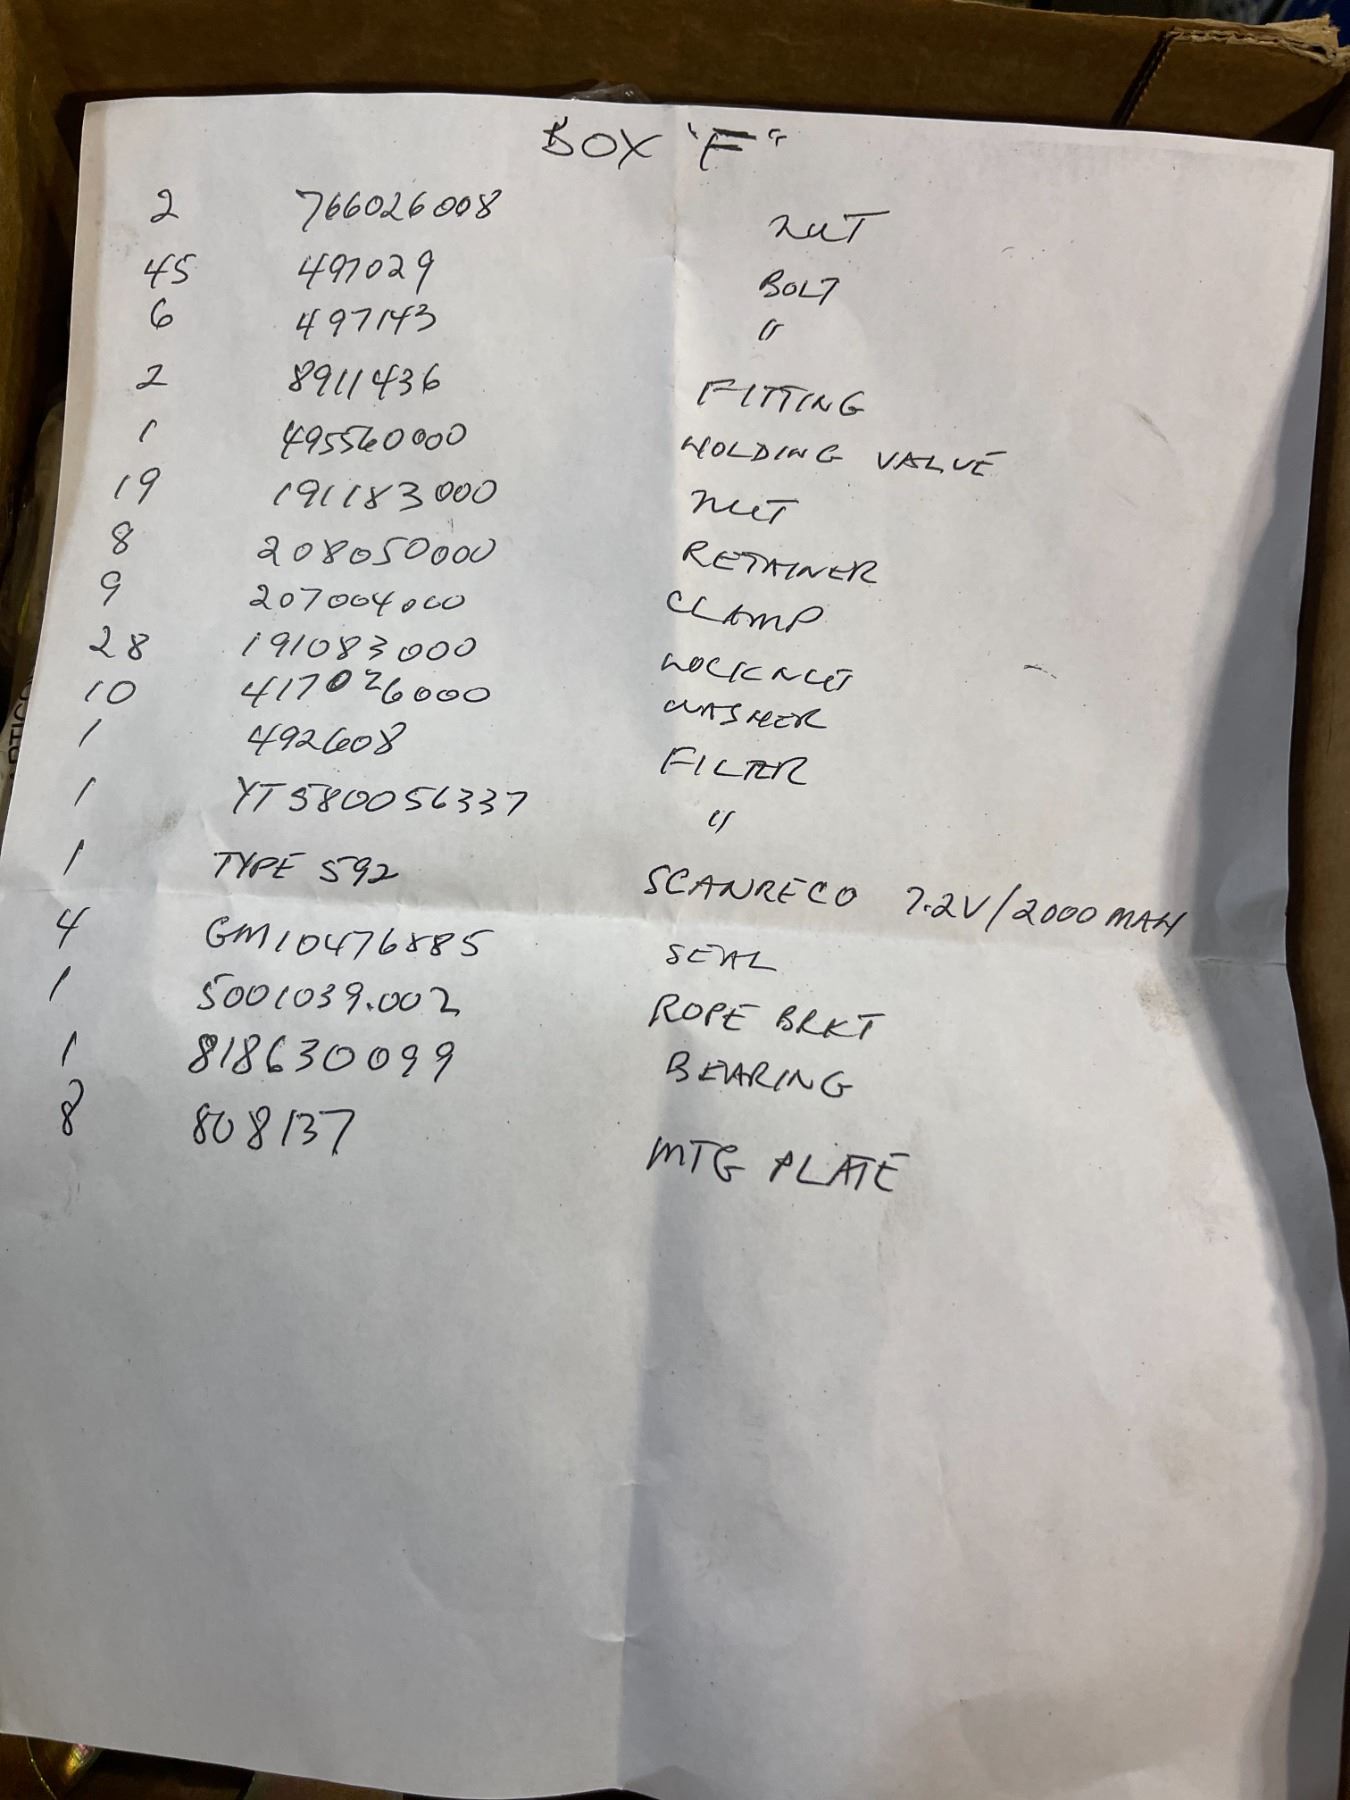 BOX "F"
2 766026008 NUT
45 497029 BOLT
6 497143 "
2 8911436 FITTING
1 495560000 HOLDING VALVE
19 191183000 NUT
8 208050000 RETAINER
9 207004000 CLAMP
28 191083000 LOCKNUT
10 417026000 WASHER
1 492608 FILTER
1 YT580056337 "
1 TYPE 592 SCANRECO 7.2V/2000 MAH
4 GM10476885 SEAL
1 5001039.002 ROPE BRKT
1 818630099 BEARING
8 808137 MTG PLATE